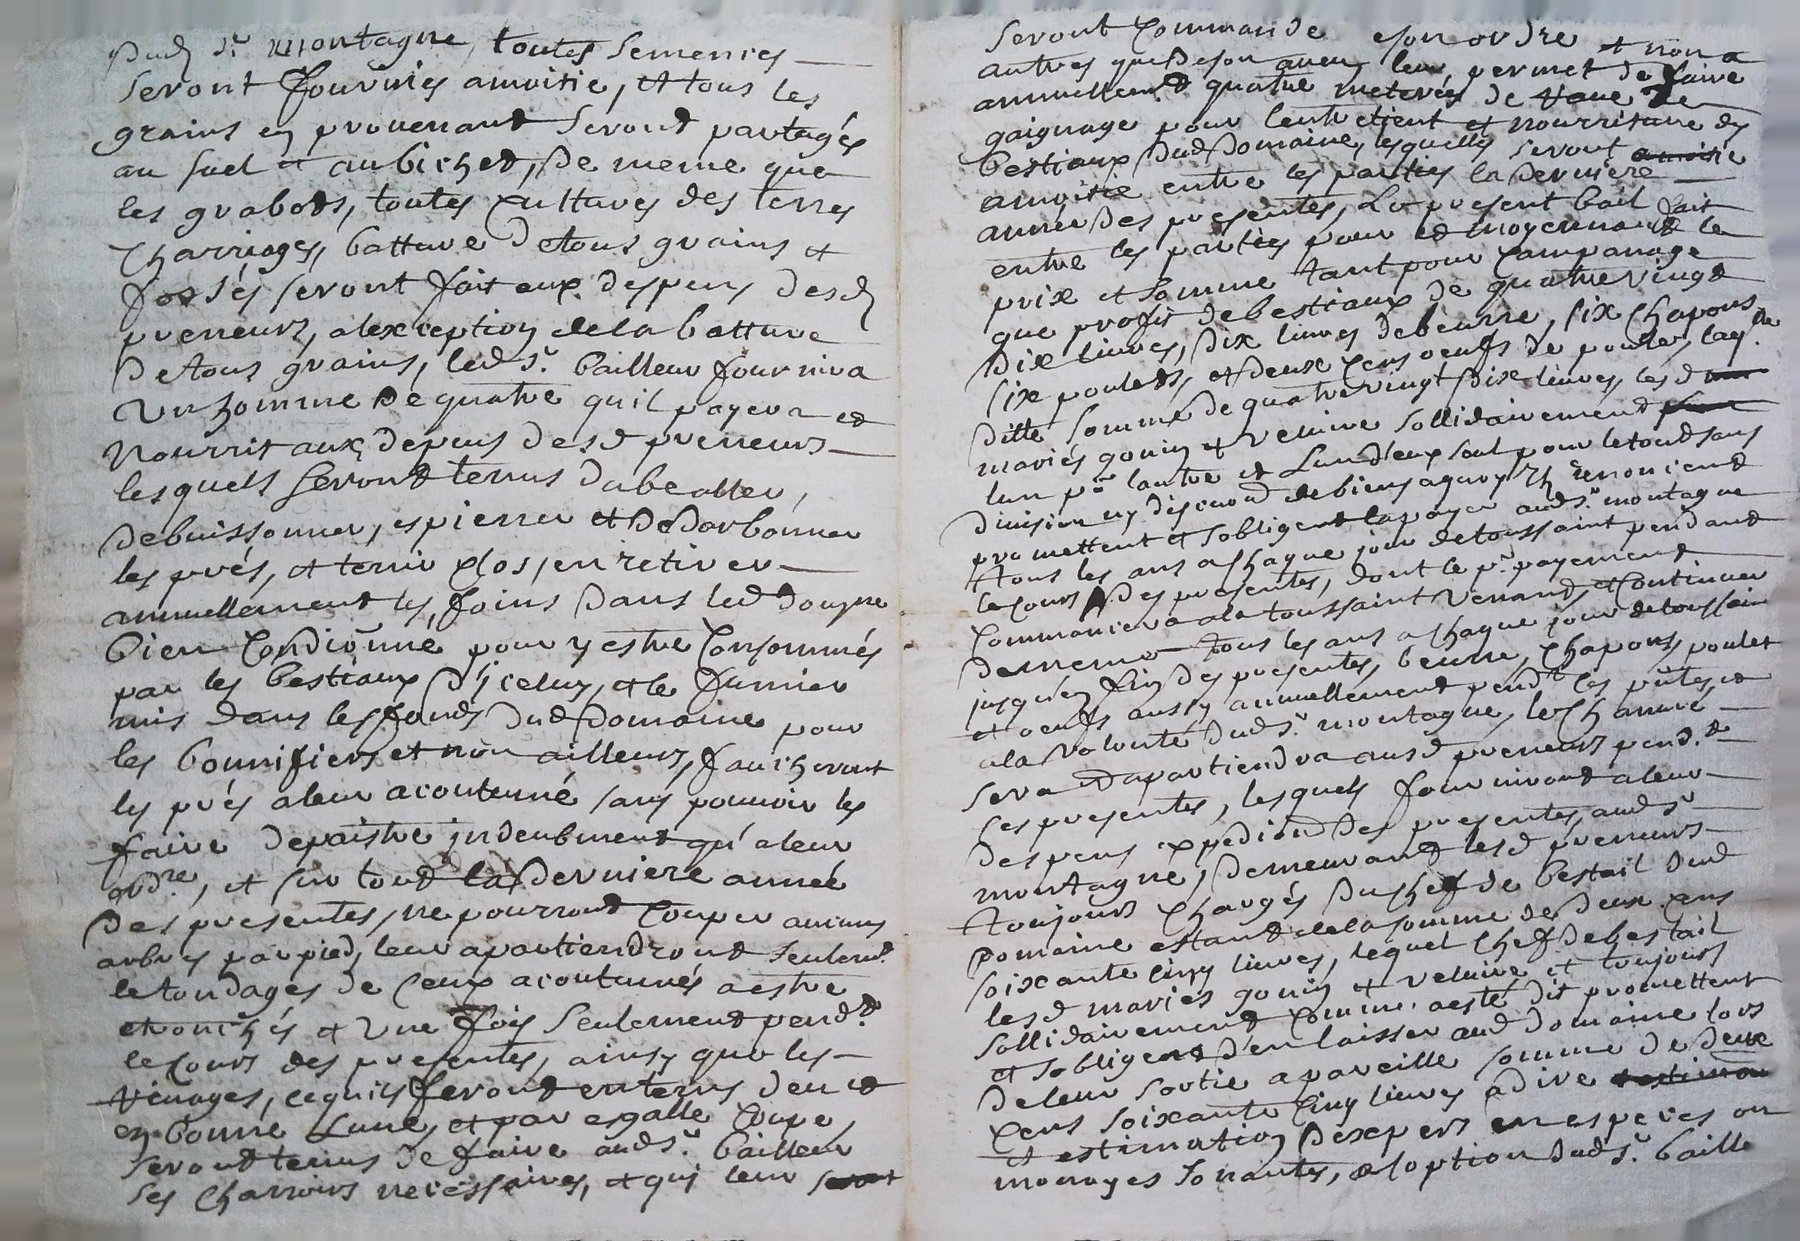 Dud Sr montagne, toutes semences
seront fournies amoitie, et tous les
grains en provenant seront partagés
au suel et aubichet, de meme que
les grabots, toutes cultures des terres
charriages, batture detous grains et
fossés seront fait aux despens desd
preneurs, alexception dela batture
detous grains, led Sr. bailleur fournira
un homme de quatre quil payera et
nourrit aux depens desd preneurs
lesquels seront tenus
debuissonner, espierrer et dedarbonner
les prés, et tenir clos, en retirer
annuellement les foins dans led domne
bien condiônné pour y estre consommés
par les bestiaux d'iceluy, et le fumier
mis dans les fonds dud domaine pour
les bonnifiers et non ailleurs, faucheront
les prés aleur acoutumé sans pouvoir les
faire depaistre indeubment qu'aleur
ordre, et sur tout la derniere année
des presentes, ne pourront couper aucuns
arbres par pied, leur apartiendront seulemt.
le tondages de ceux acoutumés a estre
et une fois seulement pendt.
le cours des presentes, ainsy que les
vernages, cequils feront en tems deu et
en bonne lune, et par esgalle coupe,
seront tenus de faire aud Sr bailleur
ses charrois necessaires, et qui leur
seront commande a son ordre et non a
autres que de son aveu, leur permet de faire
annuellemt. quatre meterées de rave de
gaignage pour lentretient et nourriture des
bestiaux dud domaine, lesquelles seront
amoitie entre les parties la derniere
année des presentes, Le present bail fait
entre les parties pour et moyennant le
prix et somme tant pour campanage
que profit debestiaux de quatre vingt
dix livres, dix livres debeurre, six chapons
six poulets, et deux cens oeufs de poules, laqlle
ditte somme de quatrevingt dix livres, lesd
mariés gonin et veluire sollidairement
lun pr lautre et lund'eux seul pour letout sans
division ny discution debiens aquoy ils renoncent
promettent et sobligent lapayer aud Sr montagne
tous les ans achaque jour detoussaint pendant
le cours des presentes, dont le pr. payement
commancera ala toussaint venant, et continuer
dememe tous les ans achaque jour detoussain
jusqu'en fin des presentes, beurre, chapons, poulet
et oeufs aussy annuellement pendt les pñtes et
ala volonté dud Sr montagne, le chanvre
sera et apartiendra ausd preneurs pendt.
ses presentes, lesquels fourniront aleur
despens expedion des presentes aud Sr
montagne, demeurant lesd preneurs
toujours chargés du chef de bestail dud
Domaine estant dela somme de deux cens
soixante cinq livres, lequel chef debestail
lesd mariés gonin et veluire et toujours
sollidairement comme aesté dit promettent
et sobligent d'en laisser aud domaine lors
deleur sortie apareille somme de deux
cens soixante cinq livres adire
et estimation dexpers en especes ou
monoyes sonantes, aloption dud Sr. baille